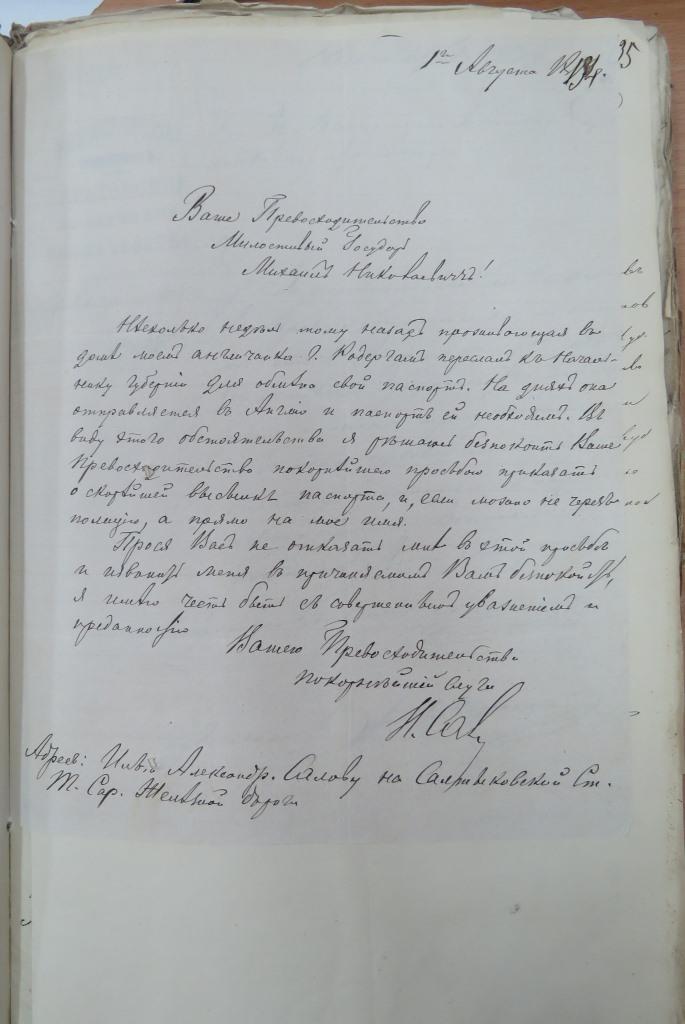 1го Августа
95
Ваше Превосходительство
Милостивый Государь
Михаилъ Николаевичъ!
Нѣсколько недѣль тому назадъ проживающая въ
домѣ моемъ англичанка Г. переслала къ Началь-
нику Губерніи для обмѣна свой паспортъ. На дняхъ она
отправляется въ Англію и паспортъ ей необходимъ. Въ
виду этого обстоятельства я рѣшаюсь безпокоить Ваше
Превосходительство покорнѣйшею просьбою приказать
о скорѣйшей высылкѣ паспорта, и, если можно не черезъ
полицію, а прямо на мое имя.
Прося Васъ не отказать мнѣ въ этой просьбѣ
и извинить меня въ причиняемомъ Вамъ безпокойствѣ,
я имѣю честь быть съ совершеннымъ уваженіемъ и
преданностію
Вашего Превосходительства
покорнѣйшій слуга
И. Сал
Адресъ: Ильѣ Александр. Салову на Салтыковской Ст.
Т. Сар. Желѣзной дороги